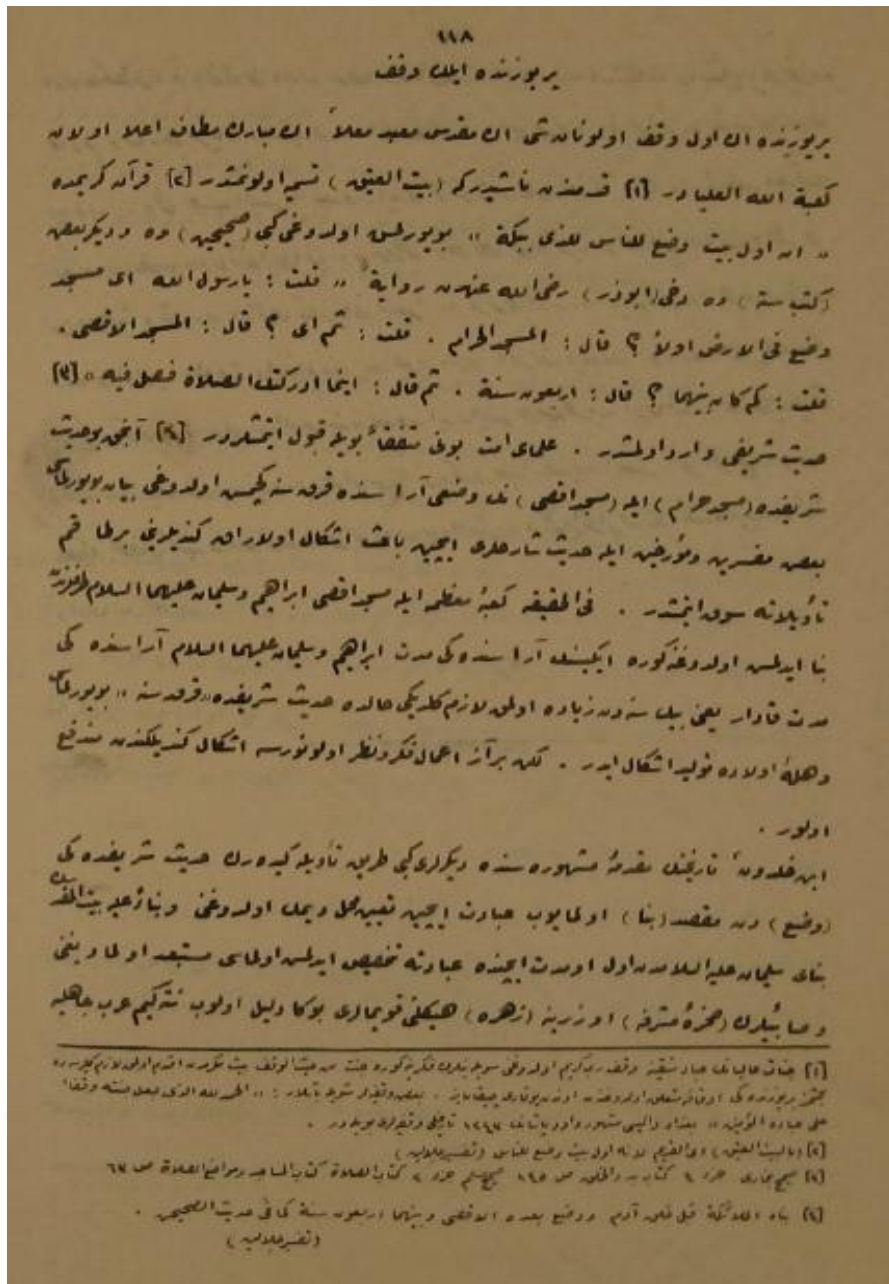 ١١٨
يريوزنده ايلك وقف
يريوزنده اك اول وقف اولونان شى اك مقدس معبد معلاّ اك مبارك مطاف اعلا اولان
كعبة الله العليا در [١] قدمندن ناشيدركه (بيت العتيق) تسميه اولونمشدر [٢] قرآن كريمده
« ان اول بيت وضع للناس للذى ببكة » بويورلمش اولدوغى كبى (صحيحين) ده وديكر بعض
(كتب ستة) ده دخى (ابوذر) رضى الله عنهدن رواية « قلت : يارسول الله اى مسجد
وضع فى الارض اولاً ؟ قال : المسجد الحرام . قلت : ثم اى ؟ قال : المسجد الاقصى .
قلت : كم كان بينهما ؟ قال : اربعون سنة . ثم قال : اينما ادركتك الصلاة فصل فيه » [٣]
حديث شريفى وارد اولمشدر . علماى امت بونى متفقاً بويله قبول ايتمشلردر [٤] آنجق بو حديث
شريفده (مسجد حرام) ايله (مسجد اقصى) نك وضعى آرا سنده قرق سنه كچمش اولدوغى بيان بويورلماسى
بعض مفسرين ومؤرخين ايله حديث شارحلرى ايچين باعث اشكال اولاراق كنديلرينى بر طاقم
تأويلاته سوق ايتمشدر . فى الحقيقه كعبهٔ معظمه ايله مسجد اقصى ابراهيم وسليمان عليهما السلام طرفلرندن
بنا ايدلمش اولدوغنه كوره ايكيسنك آرا سنده كى مدت ابراهيم وسليمان عليهما السلام آرا سنده كى
مدت قادار يعنى بيك سنه دن زياده اولمق لازم كلديكى حالده حديث شريفده « قرق سنه » بويورلماسى
وهلهٔ اولاده توليد اشكال ايدر . لكن بر آز اعمال فكر ونظر اولونورسه اشكال كنديلكندن مندفع
اولور .
ابن خلدون تاريخنك مقدمهٔ مشهوره سنده ديكرلرى كبى طريق تأويله كيده رك حديث شريفده كى
(وضع) دن مقصد (بنا) اولمايوب عبادت ايچين تعيين محل ديمك اولدوغنى وبناءً عليه بيت المقدسك
بناى سليمان عليه السلامدن اول او مدت ايچنده عبادته تخصيص ايدلمش اولماسى مستبعد اولماديغنى
وصابئيلرك (صخرهٔ مشرفه) اوزرينه (زهره) هيكلنى قويمالرى بوكا دليل اولوب نته كيم عرب جاهليه
[١] جناب وقف اولدوغى كوره جنت من حيث الوقف اقدم اولمق لازم
يريوزنده كى اوقافه متعلق اولدوغندن . بعض وقفيه لر شويله باشلار : « الحمد لله الذى جعل الجنة وقفاً
على عباده المؤمنين » بغداد واليسى مشهور داود پاشانك ١٢٤٣ تاريخلى وقفيه لرى بويله در .
[٢] (بالبيت العتيق) اى القديم لانه اول بيت وضع للناس (تفسير جلالين)
[٣] صحيح بخارى جزء ٤ كتاب بدء الخلق ص ١٤٥ صحيح مسلم جزء ٢ كتاب الصلاة كتاب المساجد ومواضع الصلاة ص ٦٣
[٤] بناه الملائكة قبل خلق آدم ووضع بعده الاقصى وبينهما اربعون سنة كما فى حديث الصحيحين .
(تفسير جلالين)